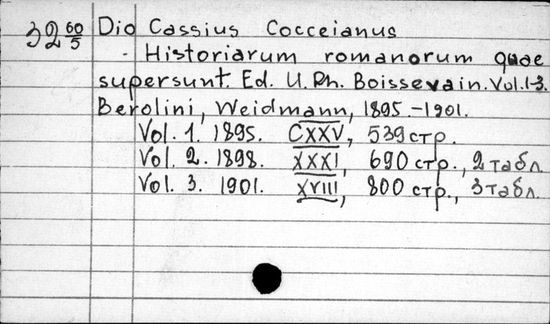 32 60/5 Dio Cassius Cocceianus
Historiarum romanorum quae
supersunt. Ed. U. Ph. Boissevain. Vol. 1-3.
Berolini, Weidmann, 1895.-1901.
Vol. 1. 1895. CXXV, 539 стр.
Vol. 2. 1898. XXXI, 690 стр., 2 табл.
Vol. 3. 1901. XVIII, 800 стр., 3 табл.